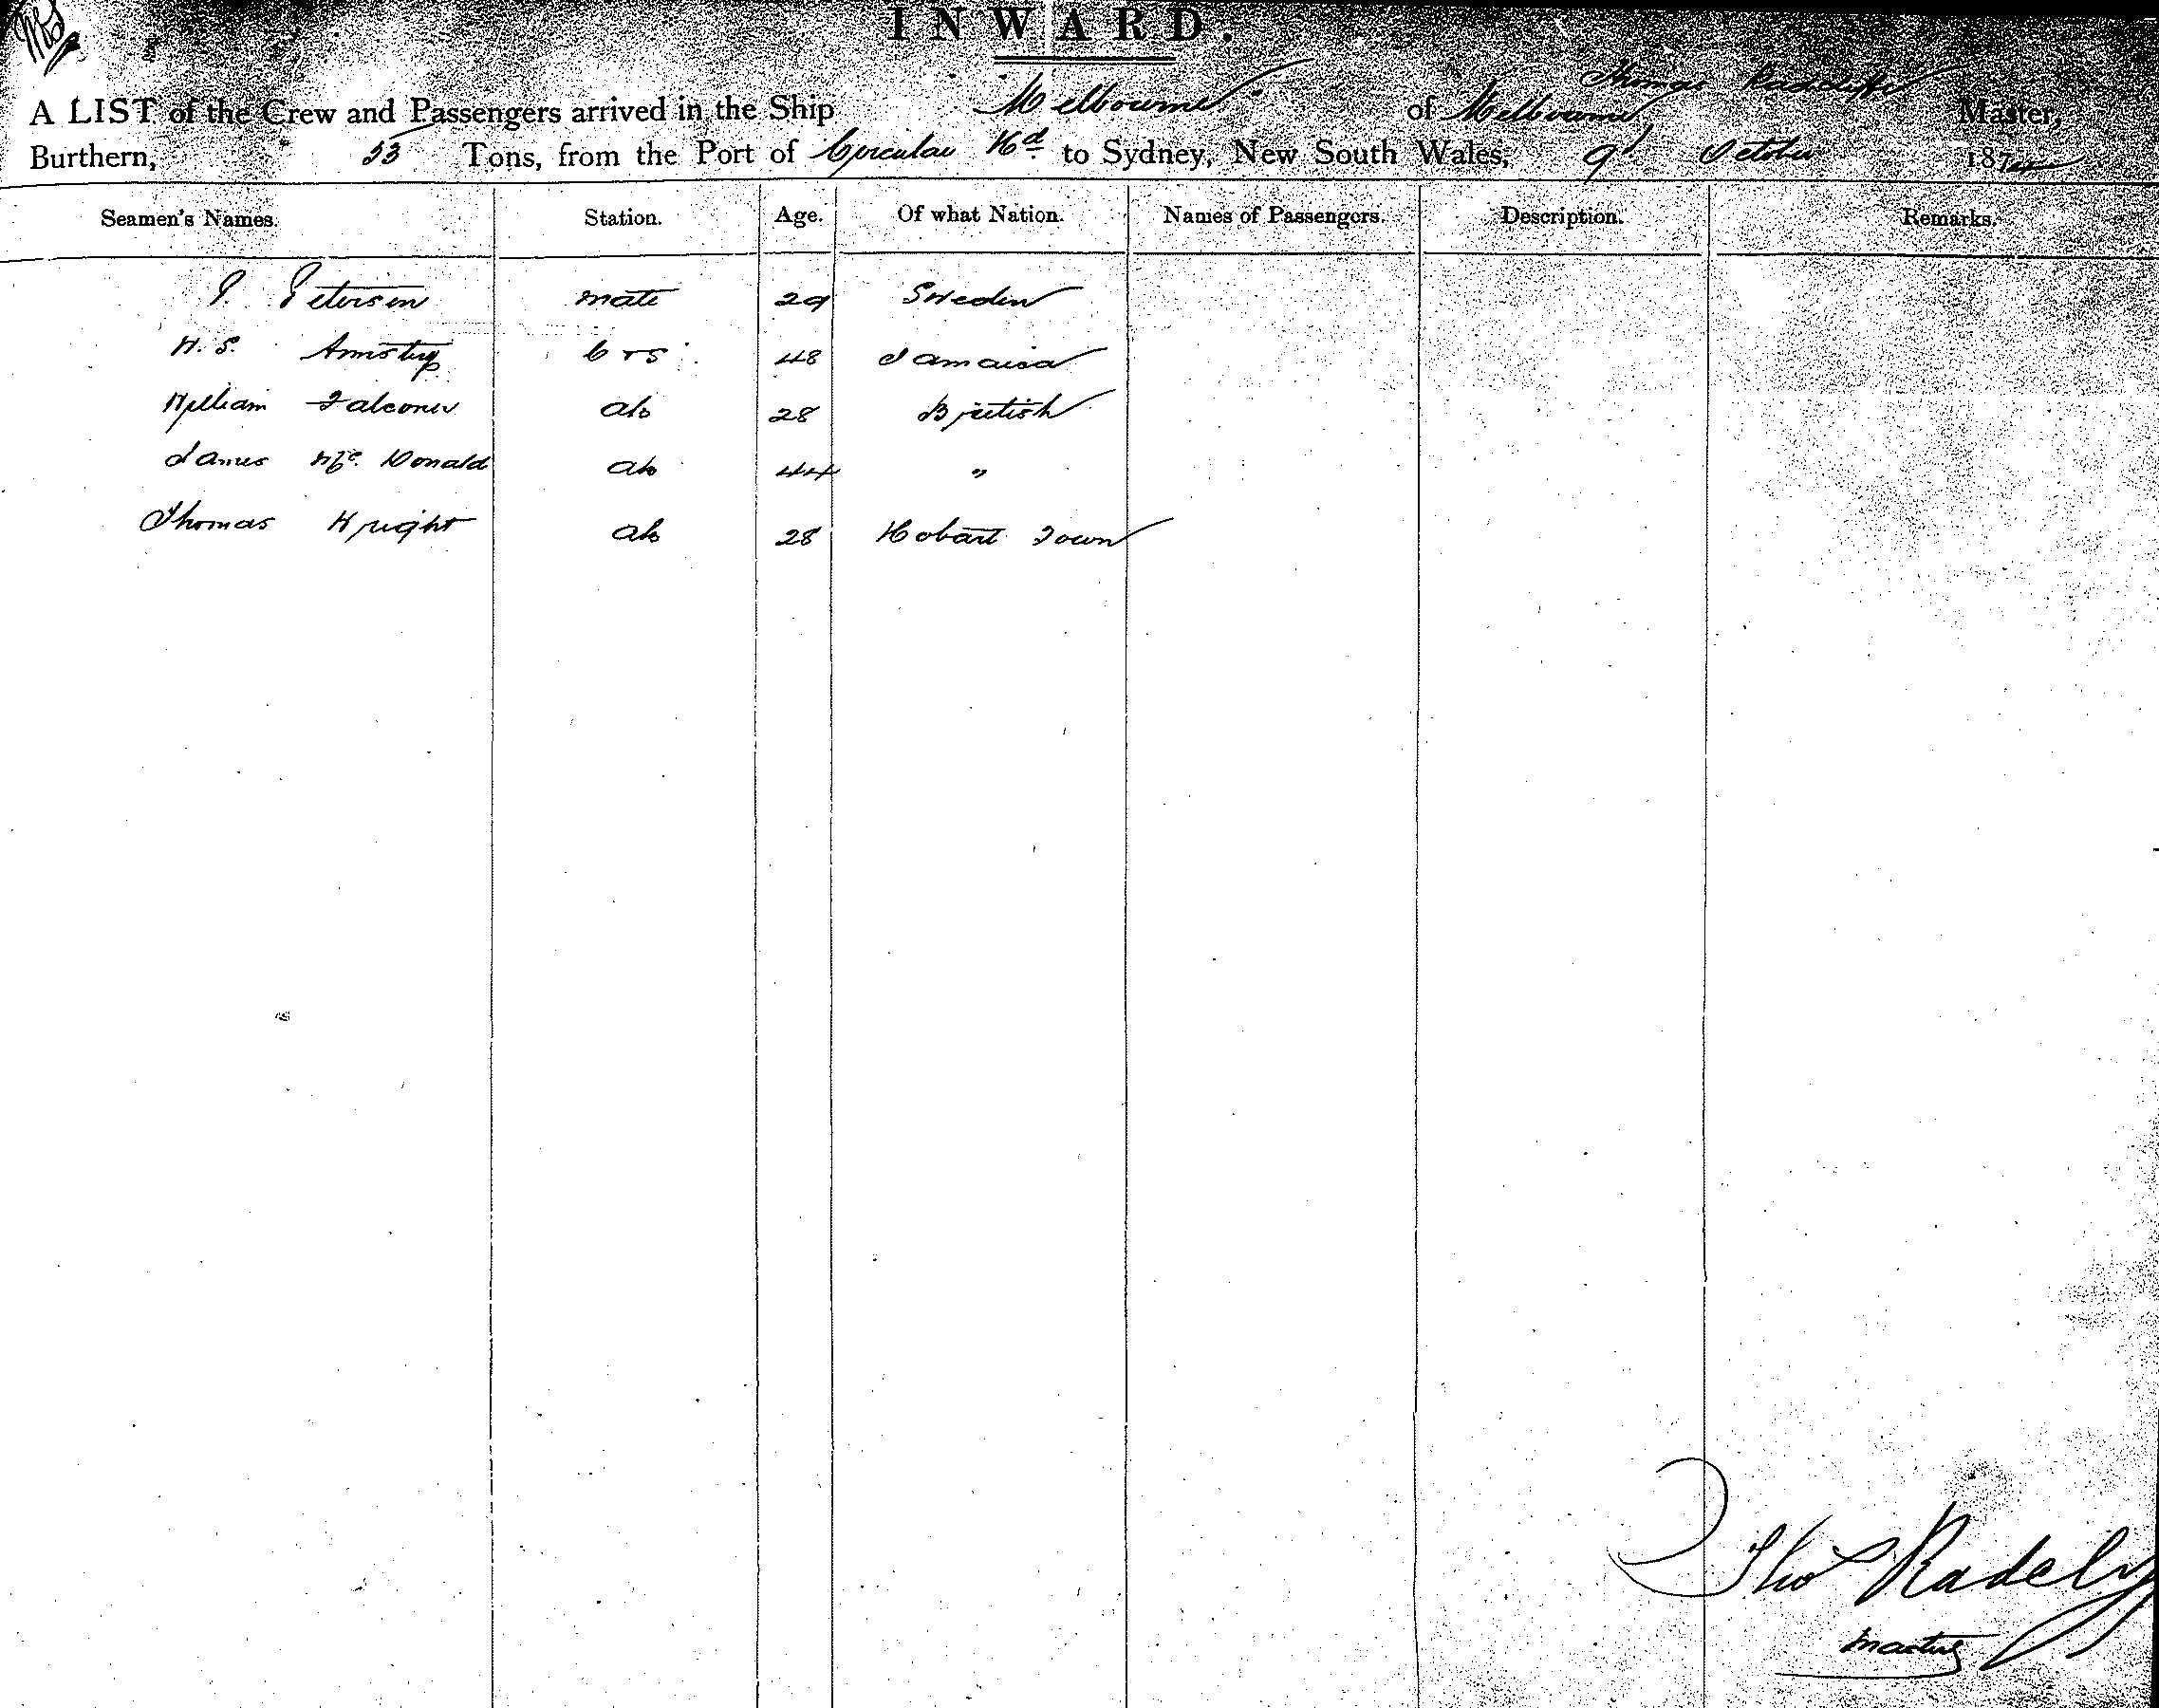 INWARD.
Thomas Radcliffe
A LIST of the Crew and Passengers arrived in the Ship Melbourne of Melbourne Master,
Burthern, 53 Tons, from the Port of Circular Hd to Sydney, New South Wales, 9th October 187
Seamen's Names. Station. Age. Of what Nation. Names of Passengers. Description. Remarks.
P. Peterson mate 29 Sweden
H. S. C & S 48 Jamaica
William Falconer ab 28 British
James Mc. Donald ab 44 "
Thomas Wright ab 28 Hobart Town
Tho
Master